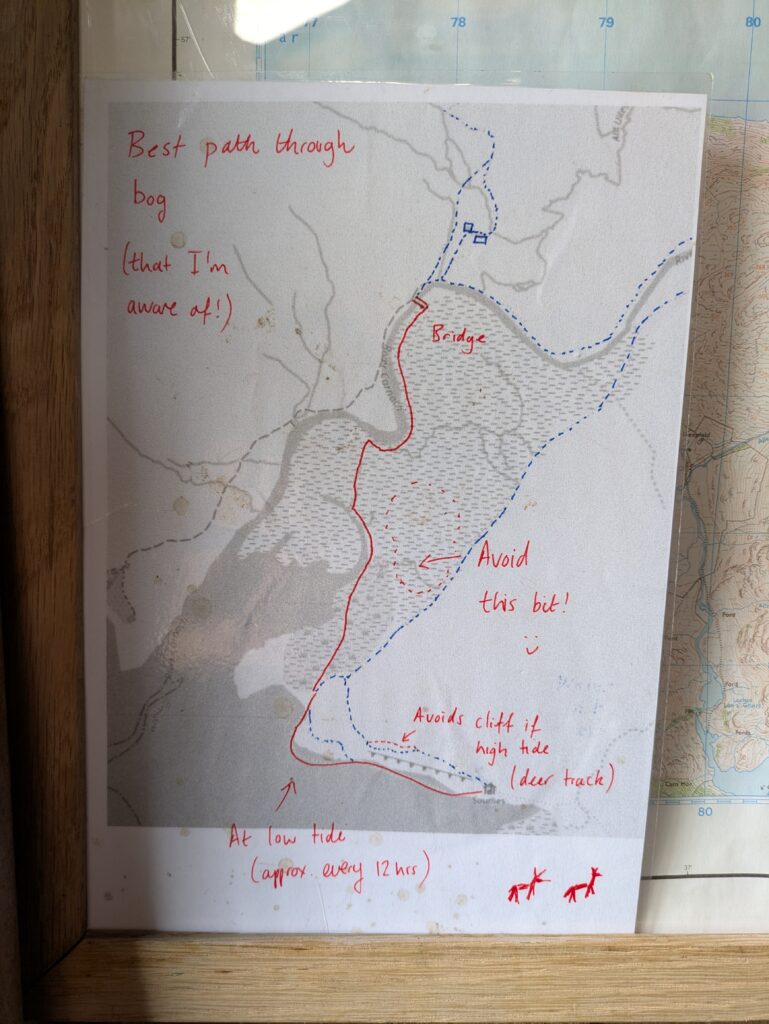 78
79
80
57'
ar
Best path through
bog
(that I'm
aware of!)
Bridge
River Carnach
Avoid
this bit!
Avoids cliff if
high tide
(deer track)
Sourlies
At low tide
(approx. every 12 hrs)
Ford
Ford
80
37'